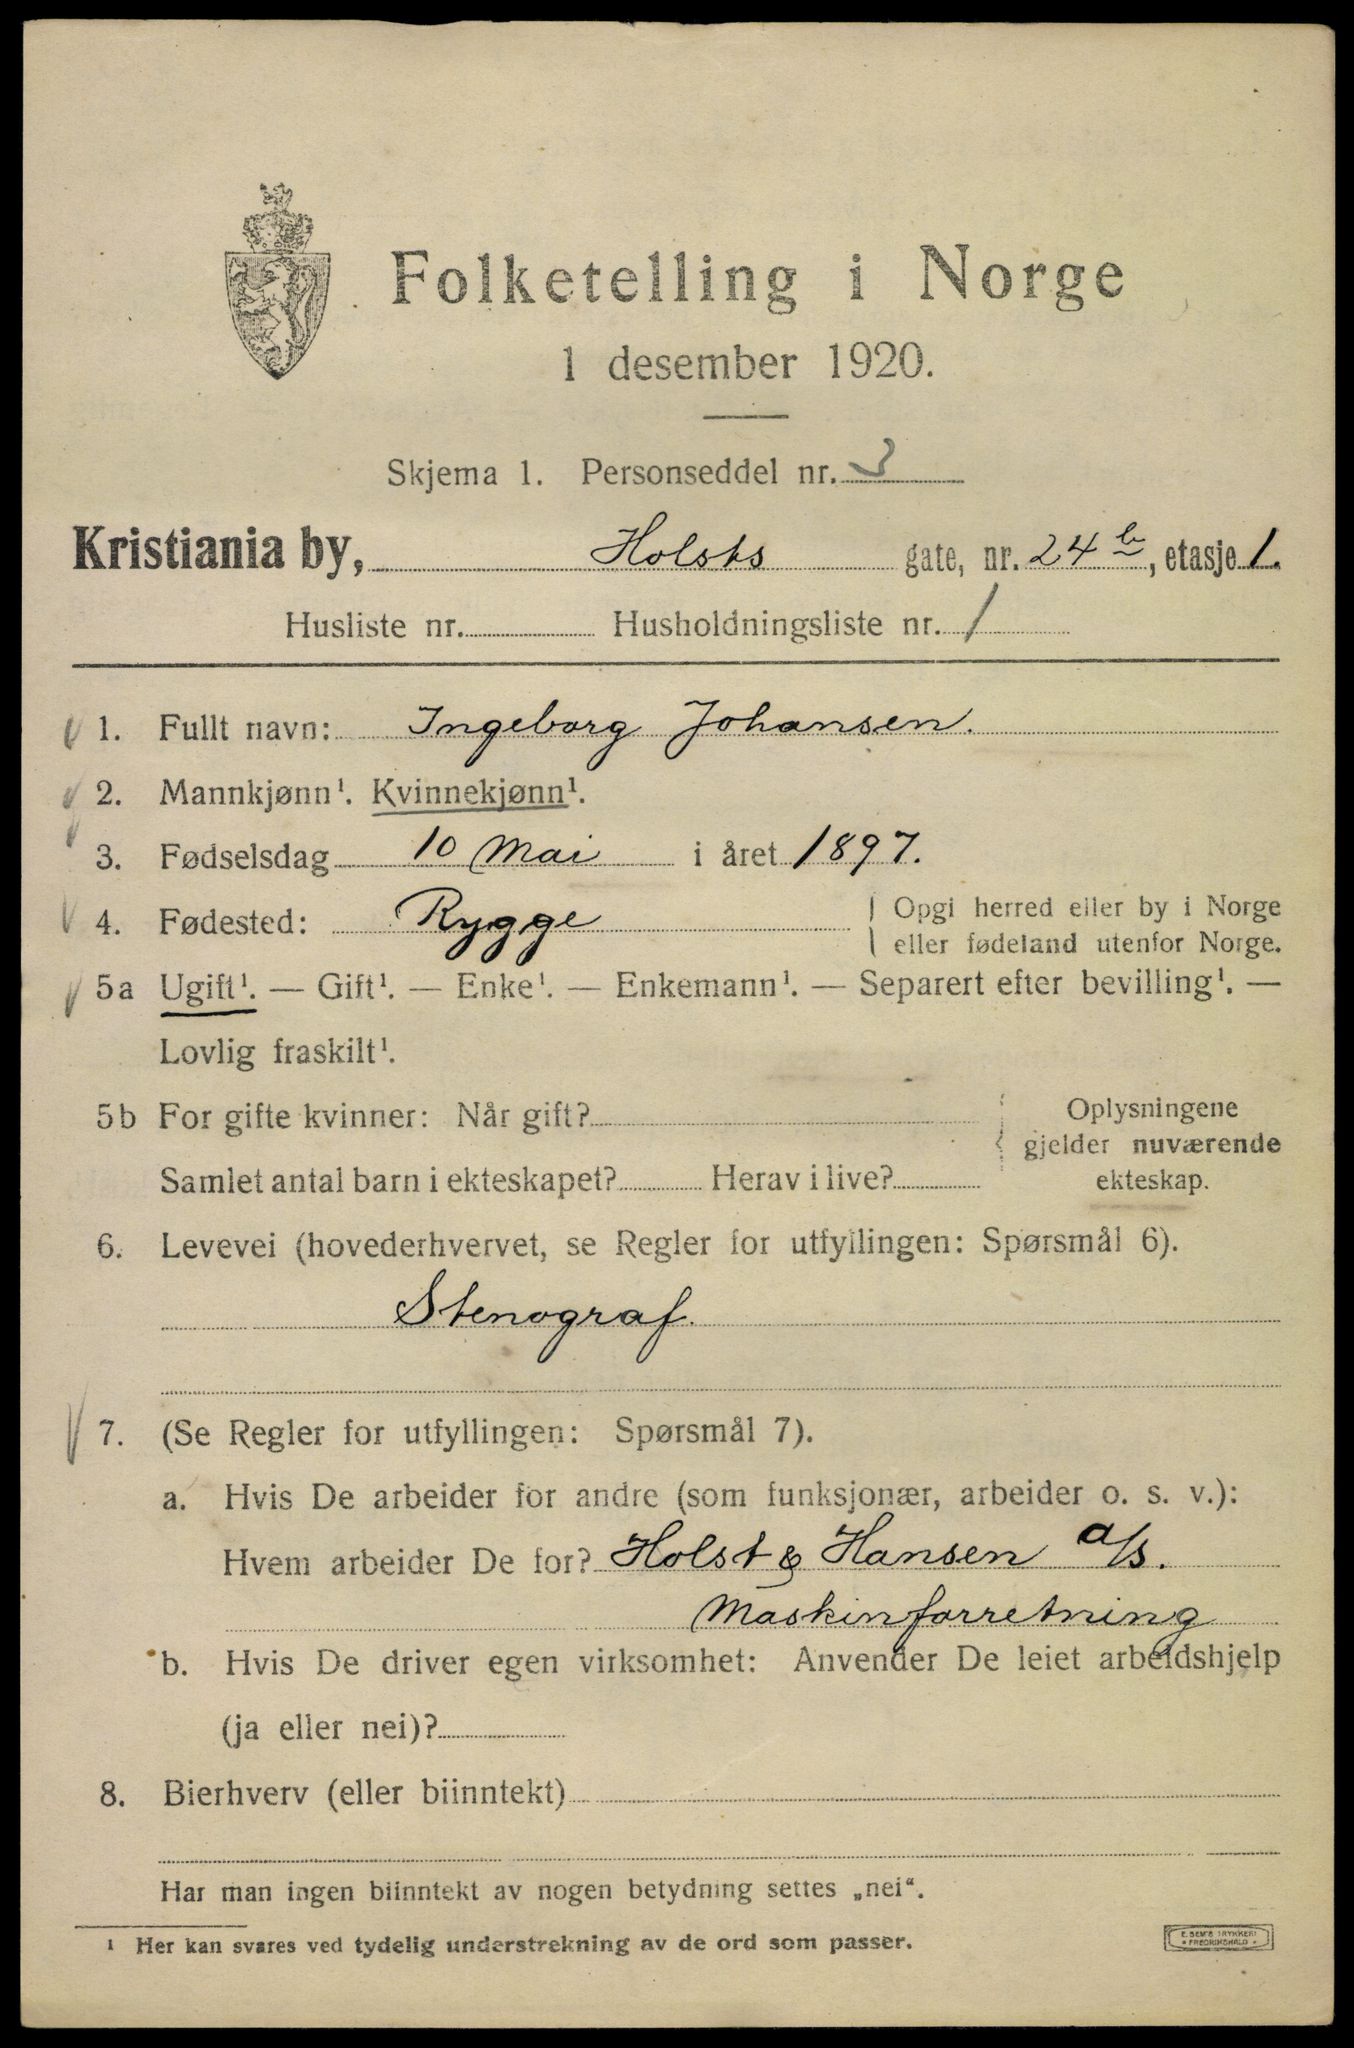 Folketelling i Norge
1 desember 1920.
Skjema 1. Personseddel nr. 3
Kristiania by, Holsts gate, nr. 24 b, etasje 1.
Husliste nr. Husholdningsliste nr. 1
1. Fullt navn: Ingeborg Johansen.
2. Mannkjønn¹. Kvinnekjønn¹.
3. Fødselsdag 10 Mai i året 1897.
4. Fødested: Rygge
Opgi herred eller by i Norge
eller fødeland utenfor Norge.
5a Ugift¹. — Gift¹. — Enke¹. — Enkemann¹. — Separert efter bevilling¹. —
Lovlig fraskilt¹.
5b For gifte kvinner: Når gift?
Samlet antal barn i ekteskapet? Herav i live?
Oplysningene
gjelder nuværende
ekteskap.
6. Levevei (hovederhvervet, se Regler for utfyllingen: Spørsmål 6).
Stenograf.
7. (Se Regler for utfyllingen: Spørsmål 7).
a. Hvis De arbeider for andre (som funksjonær, arbeider o. s. v.):
Hvem arbeider De for? Holst & Hansen a/s.
Maskinforretning
b. Hvis De driver egen virksomhet: Anvender De leiet arbeidshjelp
(ja eller nei)?
8. Bierhverv (eller biinntekt)
Har man ingen biinntekt av nogen betydning settes „nei“.
¹ Her kan svares ved tydelig understrekning av de ord som passer.
E. SEM'S TRYKKERI
* FREDRIKSHALD *